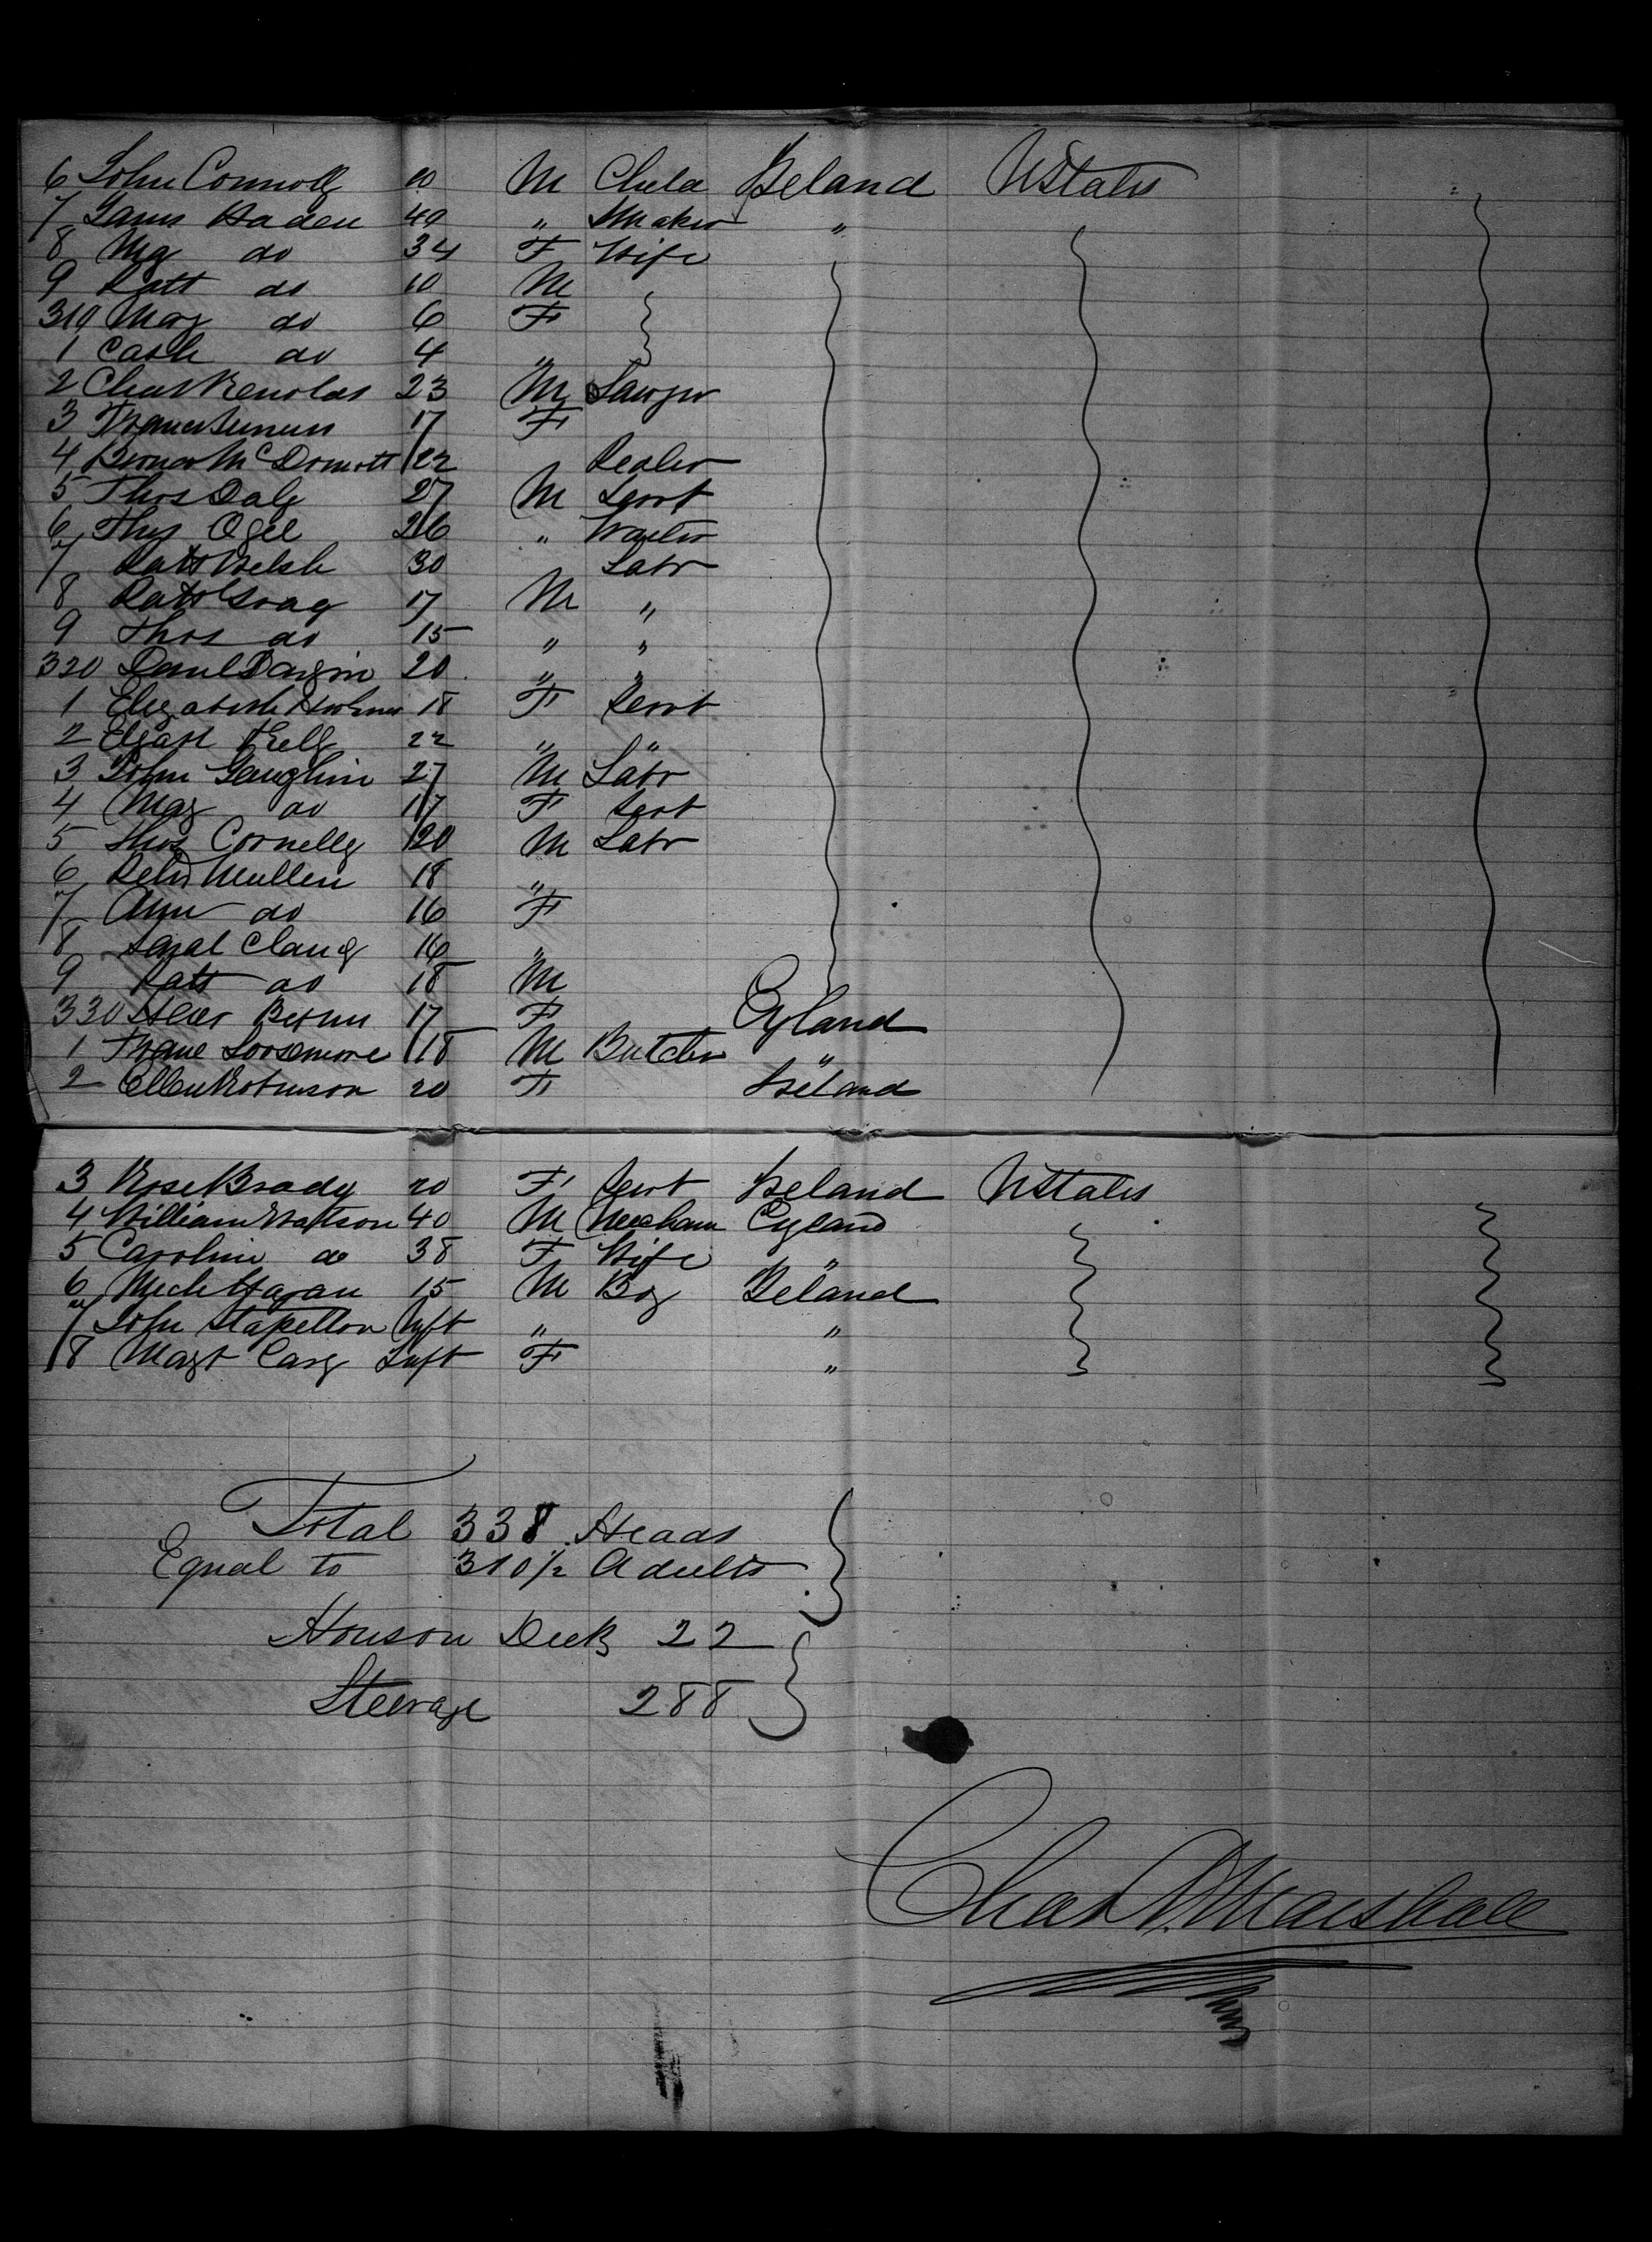 6 John Connolly 10 M Child Ireland UStates
7 James Haden 40 " Smaker "
8 Mg do 34 F Wife
9 Patt do 10 M
310 Mary do 6 F
1 Cath do 4 "
2 Chas Renolds 23 M Sawyer
3 17 F
4 McDermott 22 " Dealer
5 Thos Daly 27 M Servt
6 Thos Ogle 26 " Waiter
7 Patt Welsh 30 Labr
8 Patt 17 M "
9 Thos do 15 " "
320 20 " "
1 Elizabeth Holmes 18 F Servt
2 Kelly 22 " "
3 John Gaughin 27 M Labr
4 Mary do 17 F Servt
5 Thos Connelly 20 M Labr
6 Mullen 18 "
7 Ann do 16 F
8 Sarah Clancy 16 "
9 Patt do 18 M
330 17 F England
1 Frane Loosemore 18 M Butcher "
2 Ellen Robinson 20 F Ireland
3 Rose Brady 20 F Servt Ireland UStates
4 William Watson 40 M England
5 Caroline do 38 F Wife "
6 Mich Hagan 15 M Boy Ireland
7 John Stapelton Inft " "
8 Margt Casy Inft F "
Total 338 Heads
Equal to 310½ Adults
House on Deck 22
Steerage 288
Chas A. Marshall